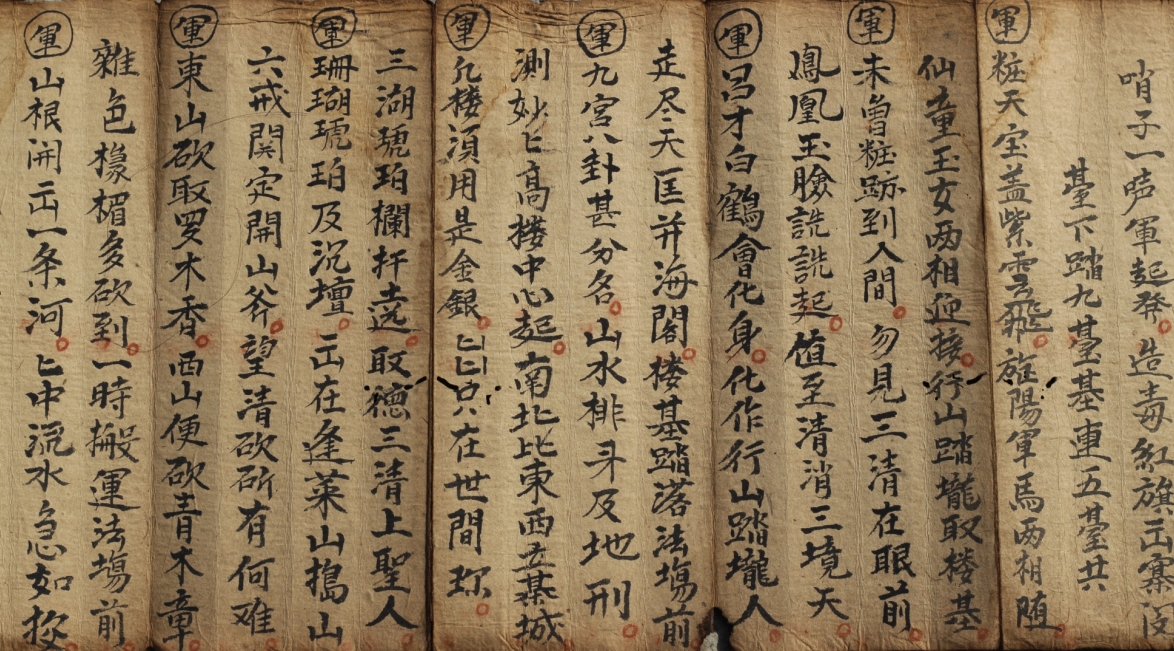 哨子一声軍起發造毒紅旗出寨
䑓下踏九䑓基連五䑓共
軍
粧天宝盖紫雲飛旌陽軍馬两相随
仙童玉女两相迎接行山踏壠取楼基
軍
未曾粧跡到人間勿見三清在眼前
鳯凰玉臉詵詵起值至清消三境天
軍
吕才白鶴會化身化作行山踏壠人
走尽天匡并海閣楼基踏落法塲前
軍
九宮八卦甚分名山水排斗及地刑
测妙匕高楼中心起南北比東西立基城
軍
九楼須用是金銀匕匕只在世間
三湖琥珀欄杆遶取德三清上聖人
軍
珊瑚琥珀及沉壇出在逢萊山搗山
六戒関定開山斧望清砍斫有何难
軍
東山砍取罗木香西山便砍青木章
雜色椽楣多砍到一時搬運法塲前
軍
山根開出一条河匕中流水急如